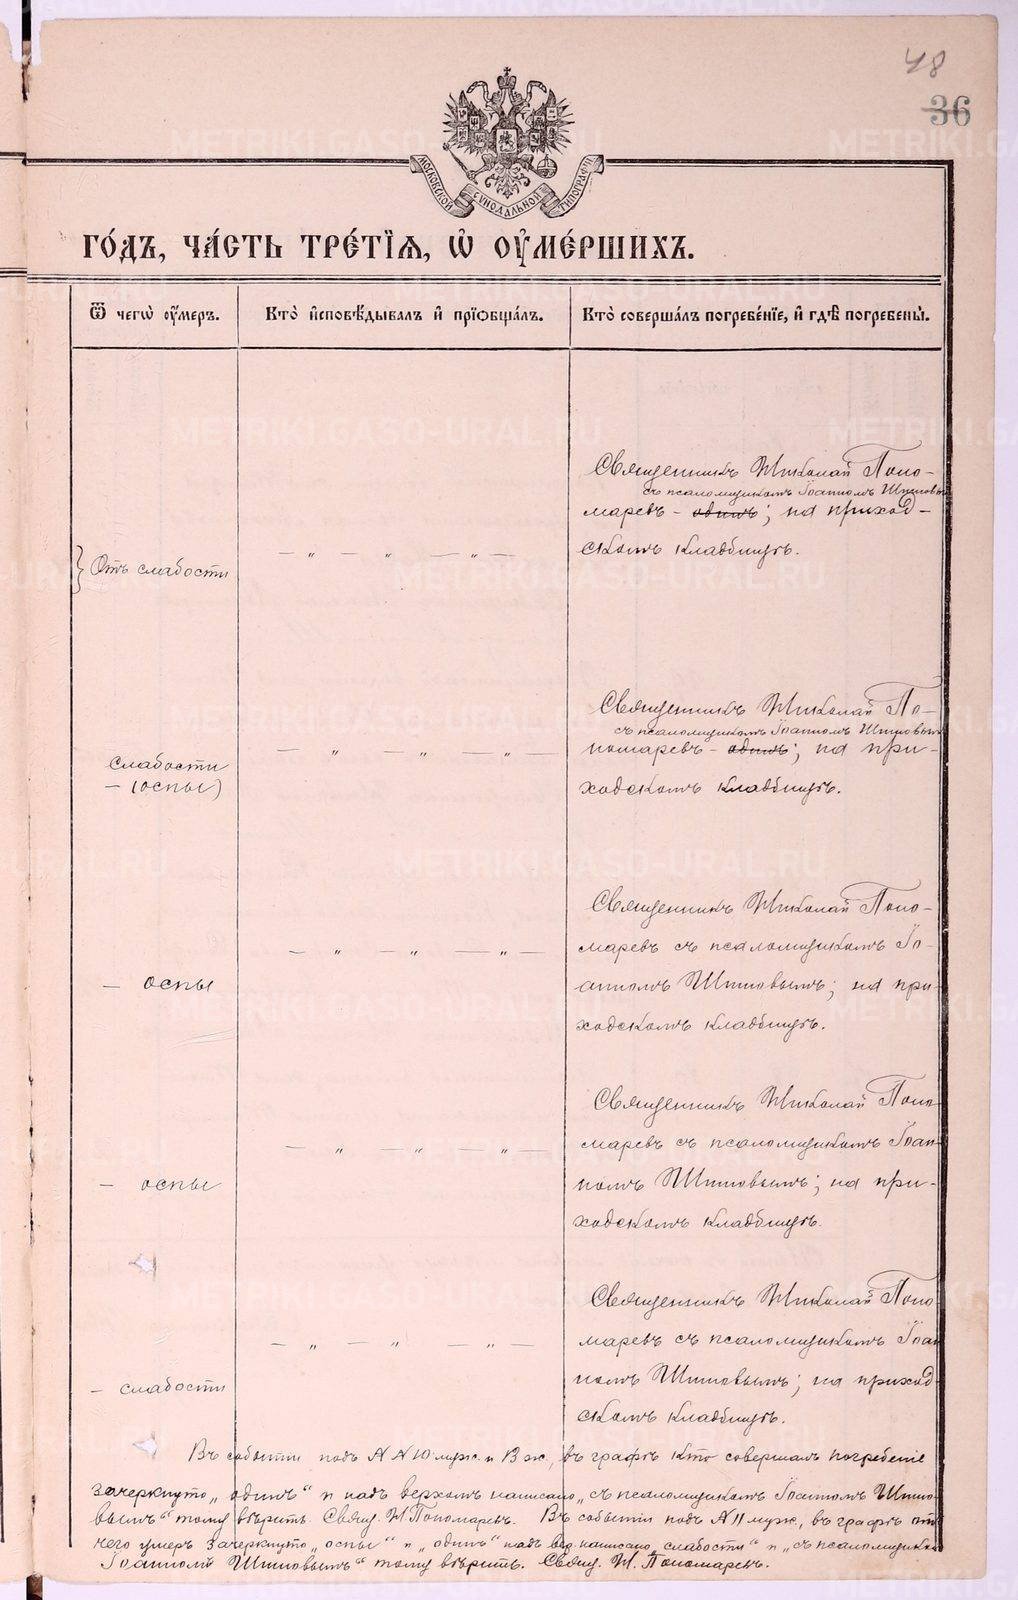 48
36
МОСКОВСКОЙ СѴНОДАЛЬНОЙ ТИПОГРАФІИ
ГО́ДЪ, ЧА́СТЬ ТРЕ́ТІѦ, Ѡ҆ ОУ҆МЕ́РШИХЪ.
Ѿ чегѡ̀ оу҆́меръ.
Кто̀ и҆сповѣ́дывалъ и҆ прїѡбща́лъ.
Кто̀ соверша́лъ погребе́нїе, и҆ гдѣ̀ погребены̀.
Священникъ Николай Поно-
съ псаломщикомъ Іоанномъ Шишовымъ
маревъ - одинъ; на приход-
скомъ кладбищѣ.
— „ — „ — „ —
} Отъ слабости
Священникъ Николай По-
съ псаломщикомъ Іоанномъ Шишовымъ
номаревъ - одинъ; на при-
ходскомъ кладбищѣ.
— „ — „ — „ —
слабости
- (оспы)
Священникъ Николай Поно-
маревъ съ псаломщикомъ Іо-
анномъ Шишовымъ; на при-
ходскомъ кладбищѣ.
— „ — „ — „ —
- оспы
Священникъ Николай Поно-
маревъ съ псаломщикомъ Іоан-
номъ Шишовымъ; на при-
ходскомъ кладбищѣ.
— „ — „ — „ —
- оспы
Священникъ Николай Поно-
маревъ съ псаломщикомъ Іоан-
номъ Шишовымъ; на приход-
скомъ кладбищѣ.
— „ — „ — „ —
- слабости
Въ событіи подъ № № 10 муж. и 8 ж., въ графѣ кто совершалъ погребеніе
зачеркнуто „одинъ“ и надъ верхомъ написано „съ псаломщикомъ Іоанномъ Шишо-
вымъ“ тому вѣрить. Свящ. Н. Пономаревъ. Въ событіи подъ № 11 муж., въ графѣ отъ
чего умеръ зачеркнуто „оспы“ и „одинъ“ надъ вер. написано „слабости“ и „съ псаломщикомъ
Іоанномъ Шишовымъ“ тому вѣрить. Свящ. Н. Пономаревъ.
METRIKI.GASO-URAL.RU